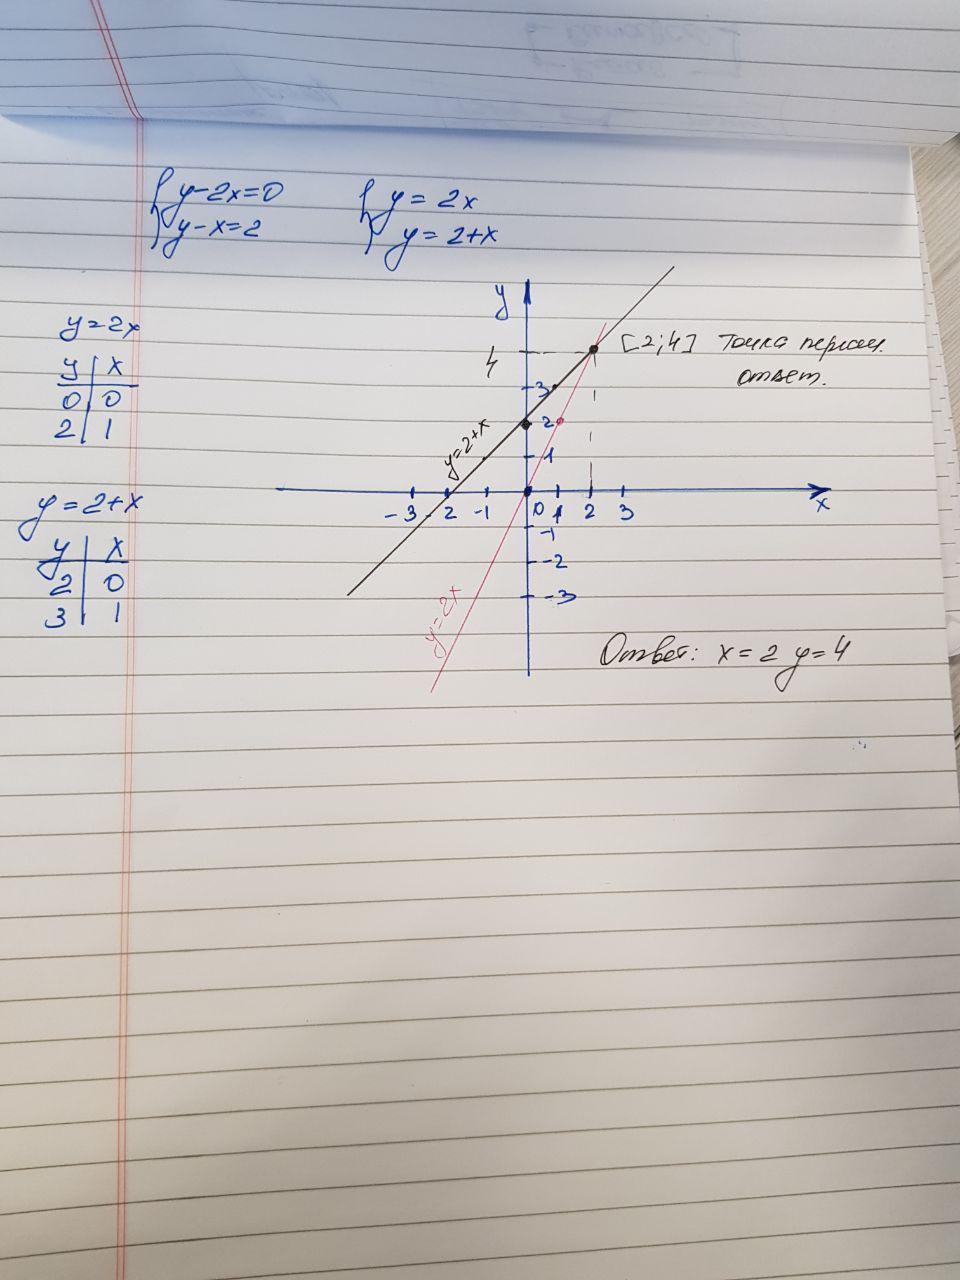 y-2x=0
y-x=2
y = 2x
y = 2+x
y=2x
y x
0 0
2 1
y = 2+x
y x
2 0
3 1
y
4
[2;4] Точка пересеч.
ответ.
3
2
1
y=2+x
-3 -2 -1 0 1 2 3
x
-1
-2
-3
y=2x
Ответ: x = 2 y = 4